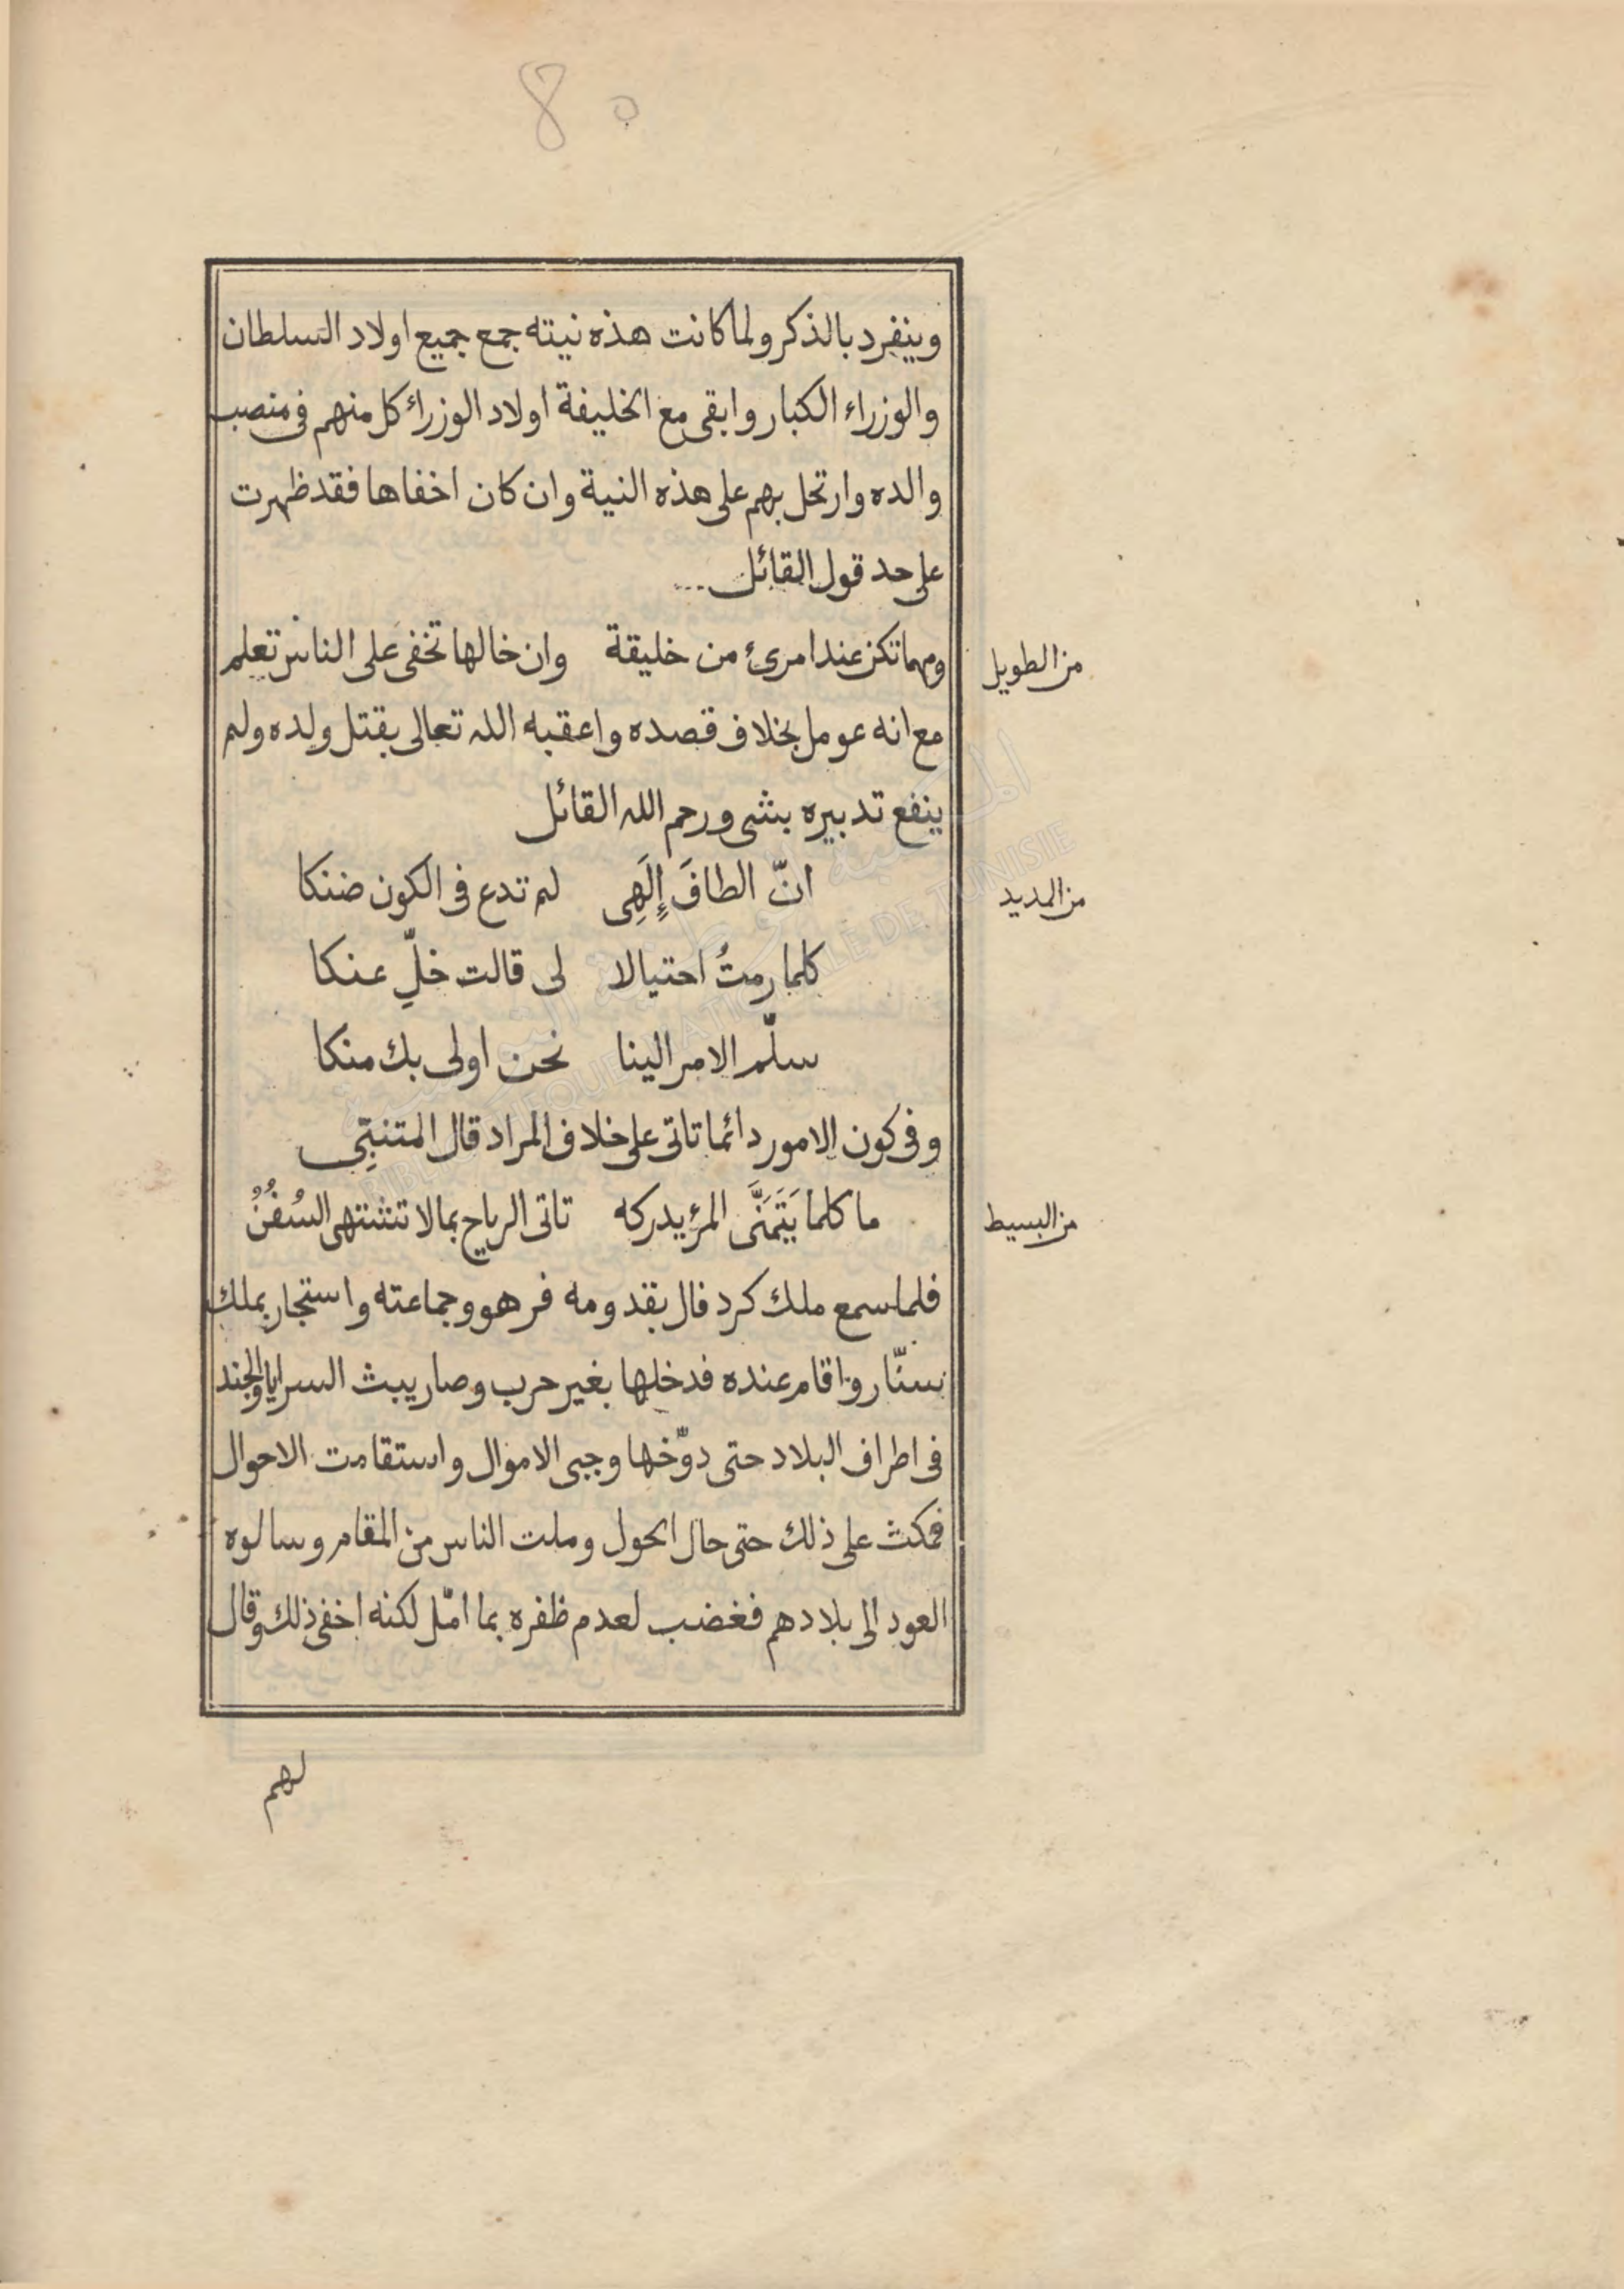 80
وينفرد بالذكر ولما كانت هذه نيته جمع جميع اولاد السلطان
والوزراء الكبار وابقى مع الخليفة اولاد الوزراء كل منهم فى منصب
والده وارتحل بهم على هذه النية وان كان اخفاها فقد ظهرت
على حد قول القائل ...
من الطويل
ومهما تكن عند امرئ من خليقة وان خالها تخفى عَلى الناس تعلم
مع انه عومل بخلاف قصده واعقبه الله تعالى بقتل ولده ولم
ينفع تدبيره بشى ورحم الله القائل
من المديد
انّ الطافَ إِلَهِى لم تدع فى الكون ضنكا
كلما رمتُ احتيالا لى قالت خلِّ عنكا
سلّم الامر الينا نحن اولى بك منكا
وفى كون الامور دائما تاتى على خلاف المراد قال المتنبِّى
من البسيط
ما كلما يَتَمَنَّى المرؤ يدركه تاتى الرياح بما لا تشتهى السُفُنُ
فلما سمع ملك كردفال بقدومه فر هو وجماعته واستجار بملك
سنّار واقام عنده فدخلها بغير حرب وصار يبث السرايا والجند
فى اطراف البلاد حتى دوّخها وجبى الاموال واستقامت الاحوال
فمكث على ذلك حتى حال الحول وملت الناس من المقام وسالوه
العود الى بلادهم فغضب لعدم ظفره بما امّل لكنه اخفى ذلك وقال
لهم
BIBLIOTHEQUE NATIONALE DE TUNISIE